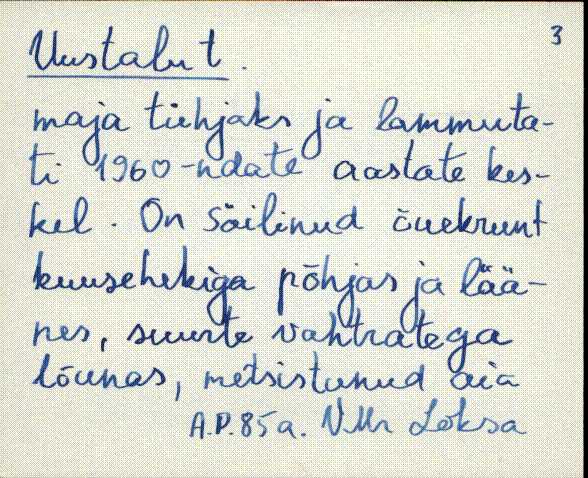 3
Uustalu t.
maja tühjaks ja lammuta-
ti 1960-ndate aastate kes-
kel. On säilinud õuekrunt
kuusehekiga põhjas ja lää-
nes, suurte vahtratega
lõunas, metsistunud aia
A.P. 85a. V.Mr Loksa